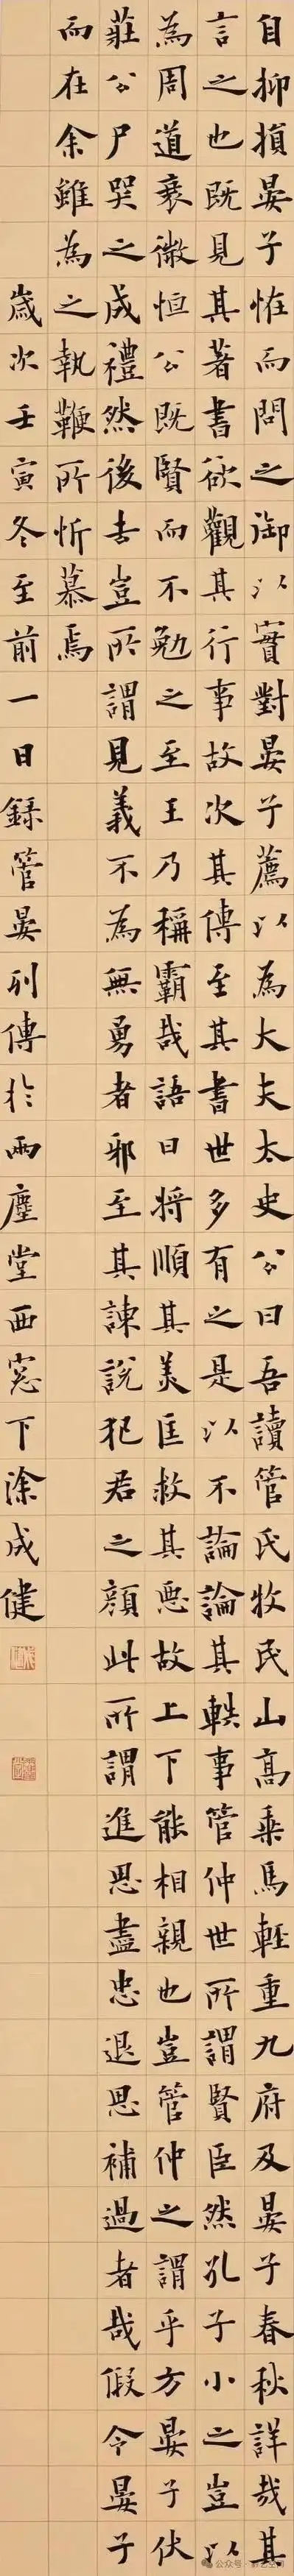 自抑損晏子恠而問之御以實對晏子薦以為大夫太史公曰吾讀管氏牧民山高乘馬輕重九府及晏子春秋詳哉其
言之也既見其著書欲觀其行事故次其傳至其書世多有之是以不論論其軼事管仲世所謂賢臣然孔子小之豈以
為周道衰微恒公既賢而不勉之至王乃稱霸哉語曰將順其美匡救其惡故上下能相親也豈管仲之謂乎方晏子伏
莊公尸哭之成禮然後去豈所謂見義不為無勇者邪至其諫說犯君之顏此所謂進思盡忠退思補過者哉假令晏子
而在余雖為之執鞭所忻慕焉
歲次壬寅冬至前一日録管晏列傳於兩塵堂西窓下涂成健
公众号